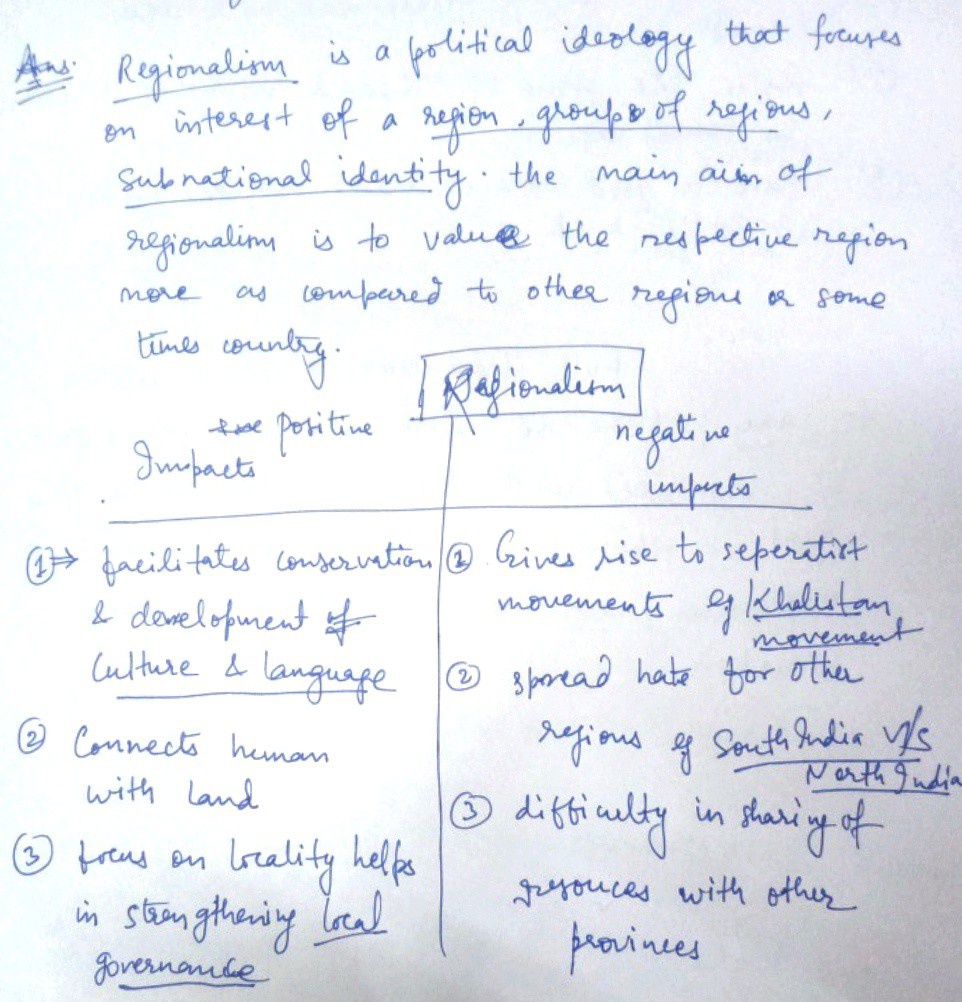 Ans. Regionalism is a political ideology that focuses
on interest of a region, groups of regions,
subnational identity. the main aim of
regionalism is to value the respective region
more as compared to other regions or some
times country.
Regionalism
positive
Impacts
negative
impacts
① ⇒ facilitates conservation
& development of
culture & language
② Connects human
with land
③ focus on locality helps
in strengthening local
governance
① Gives rise to seperatist
movements eg Khalistan
movement
② spread hate for other
regions eg South India v/s
North India
③ difficulty in sharing of
resouces with other
provinces